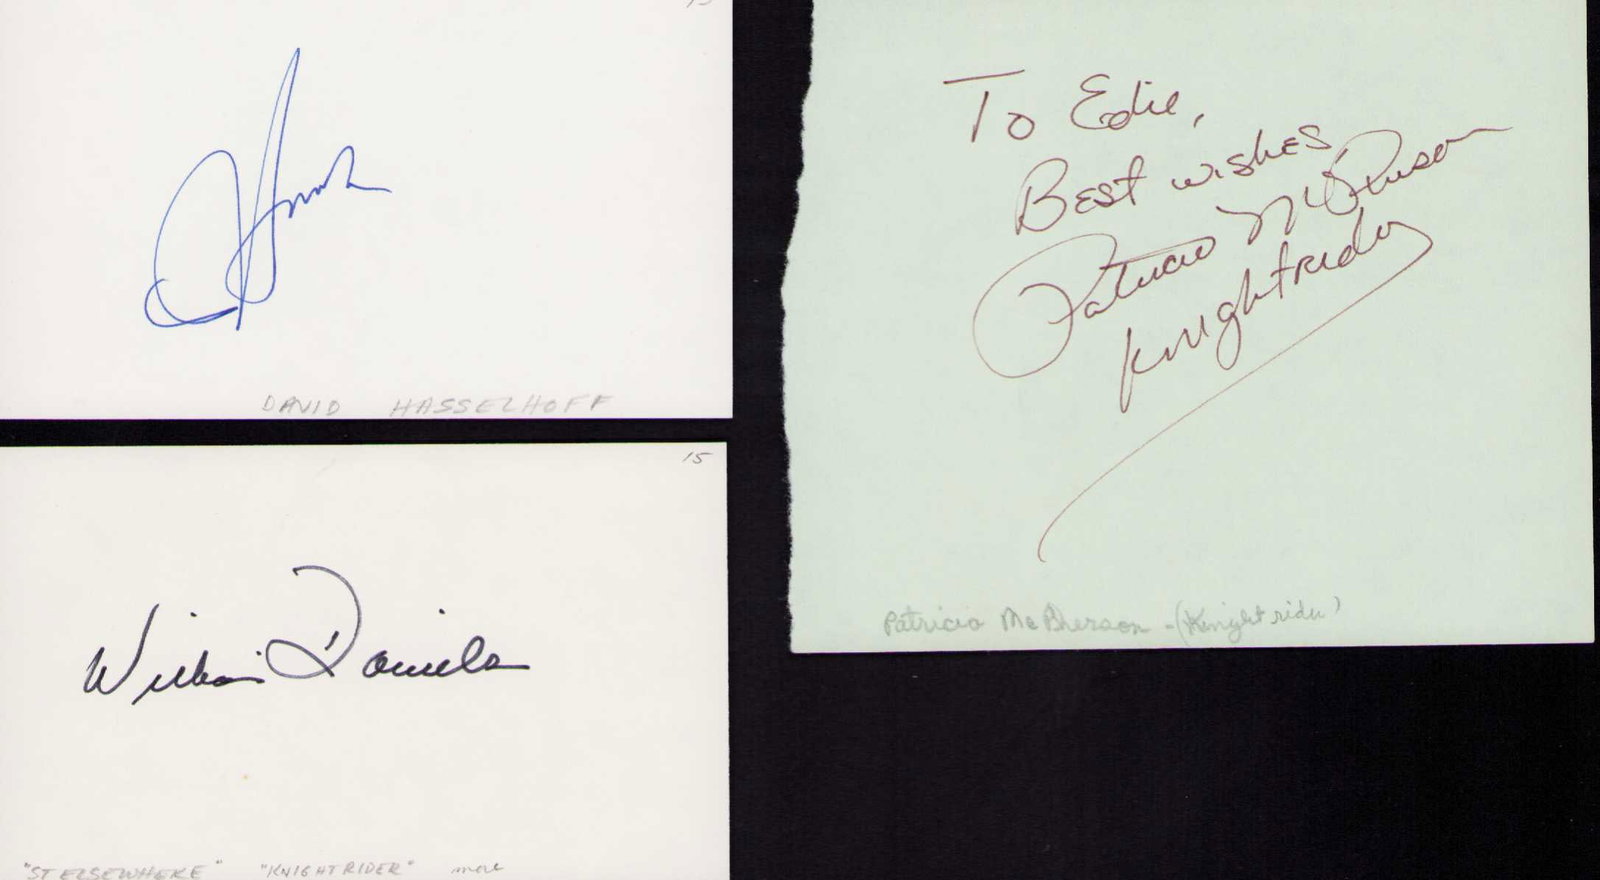 DAVID HASSELHOFF
15
William Daniels
"ST ELSEWHERE" "KNIGHTRIDER" more
To Edie,
Best wishes
Patricia McPherson
Knightrider
Patricia McPherson - (Knightrider)